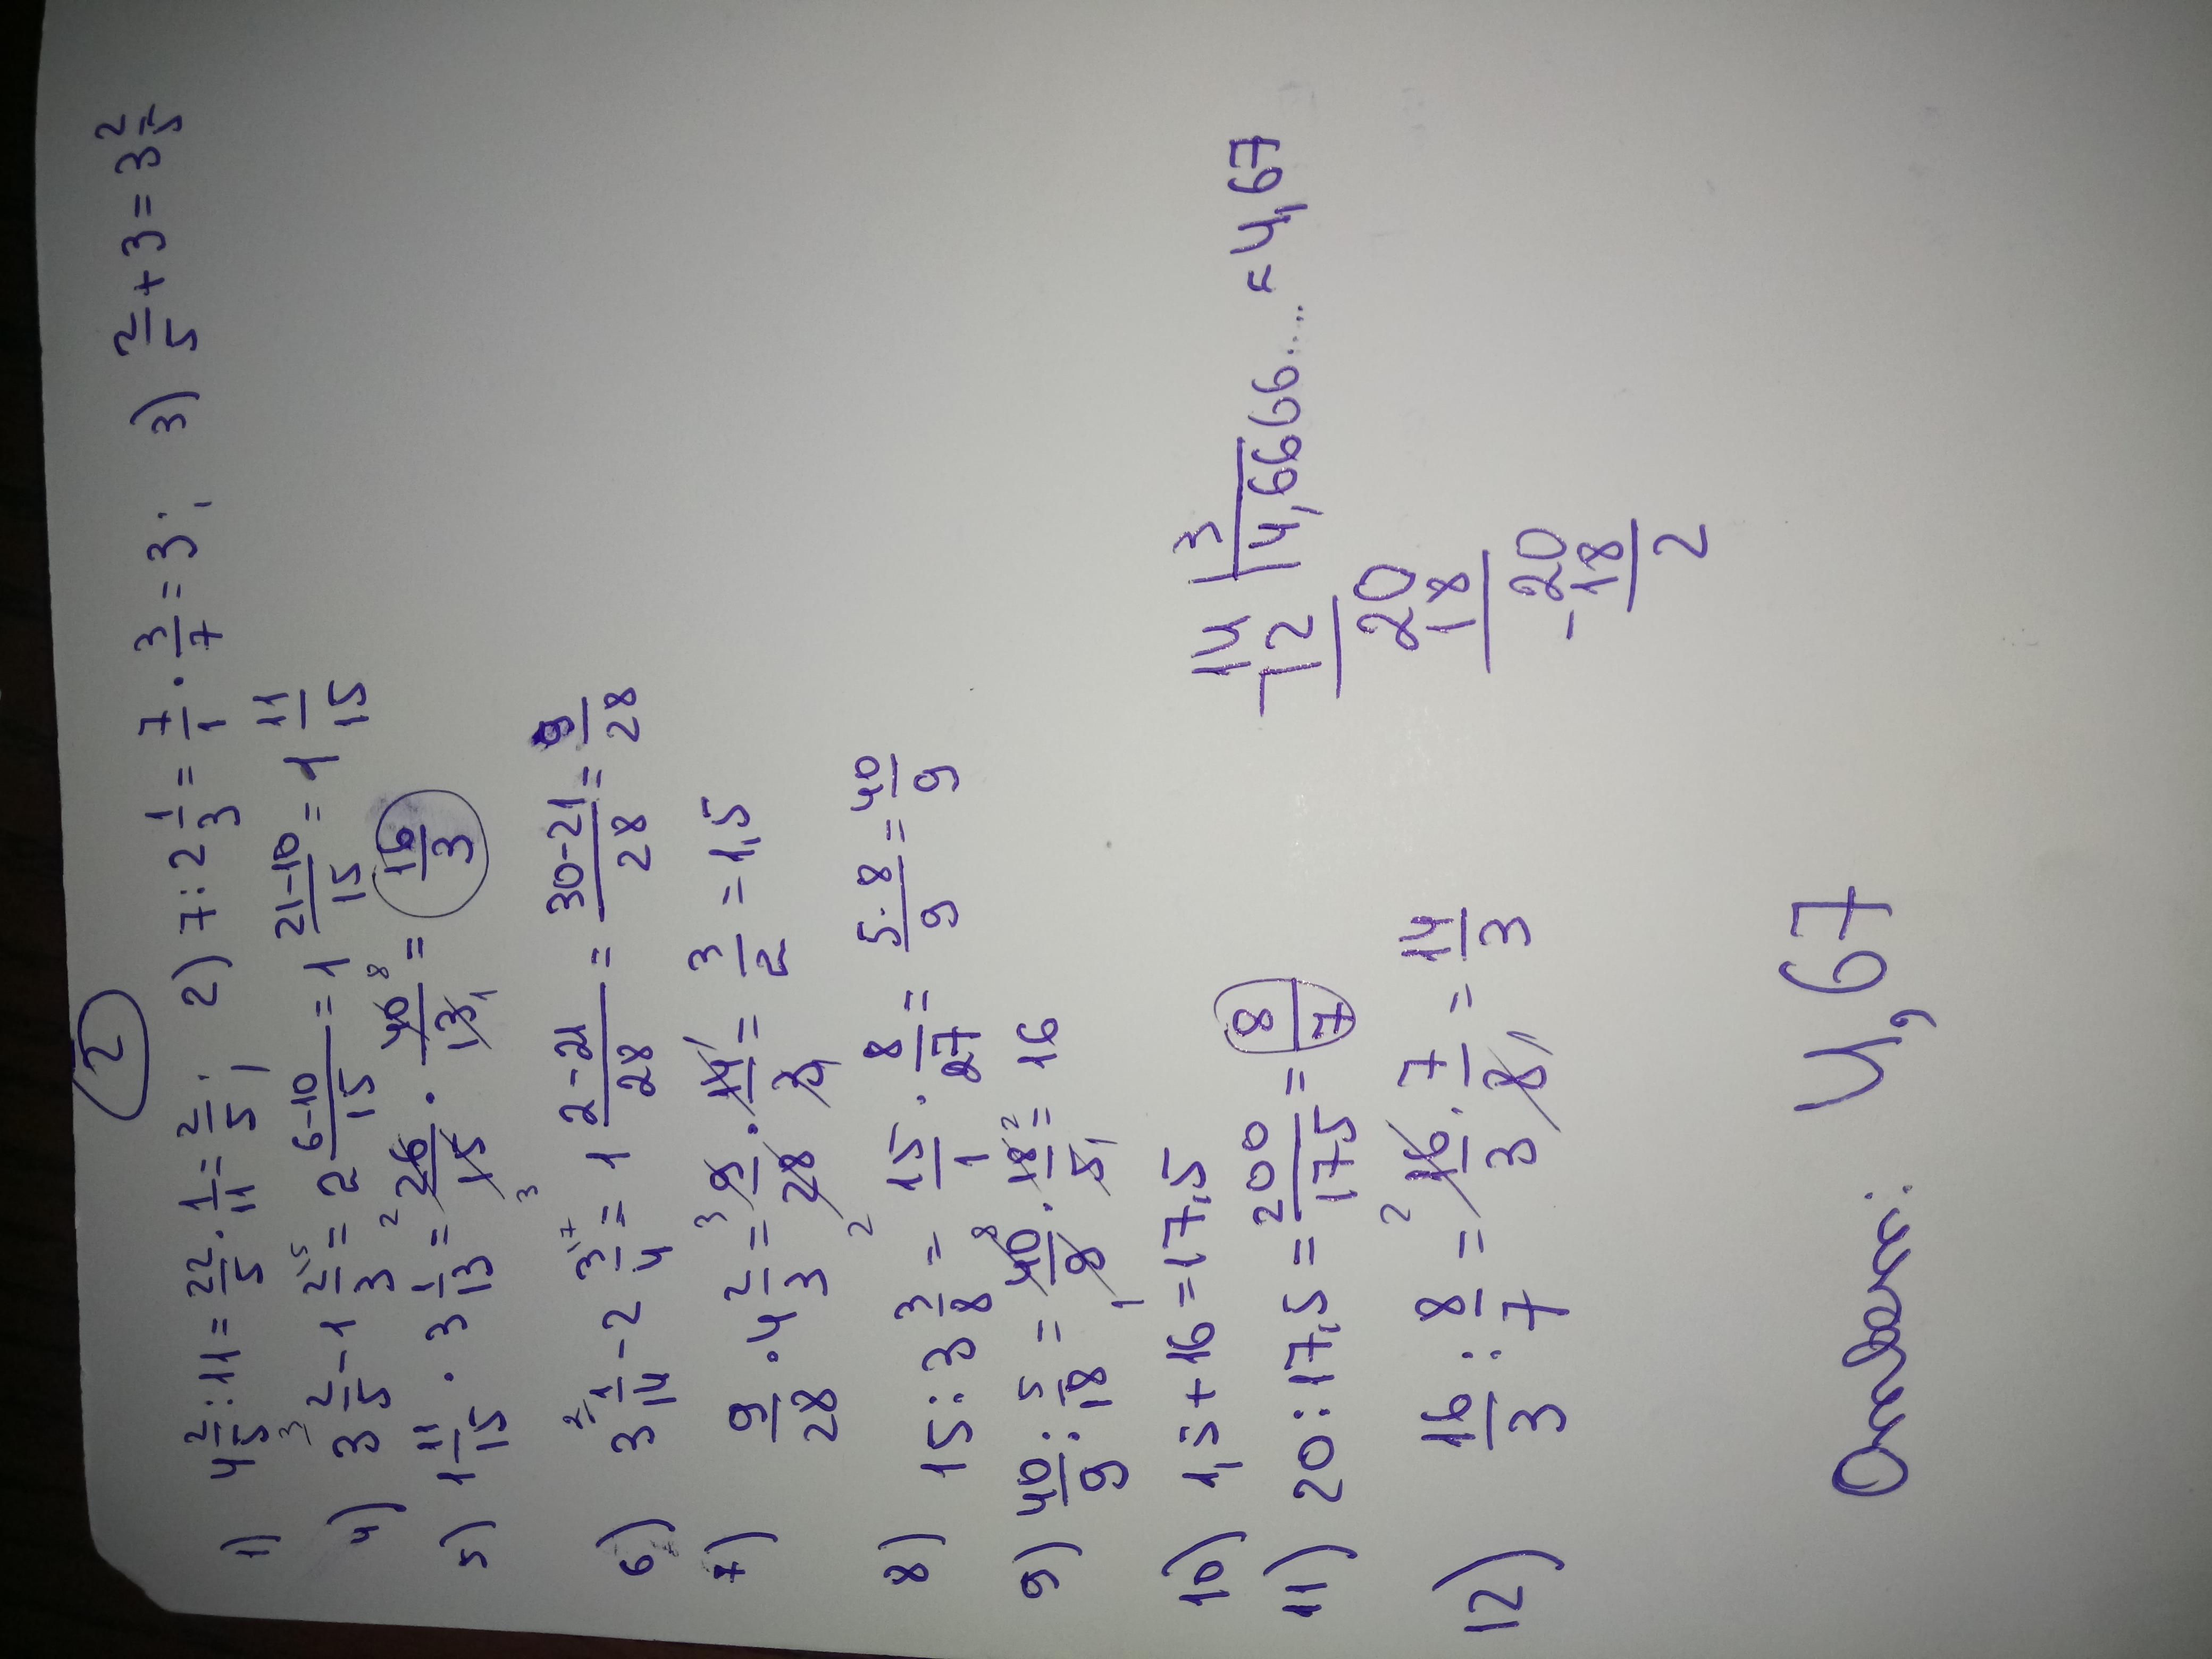 2
1) 4 2/5 : 11 = 22/5 · 1/11 = 2/5; 2) 7 : 2 1/3 = 7/1 · 3/7 = 3; 3) 2/5 + 3 = 3 2/5
4) 3 2/5 - 1 2/3 = 2 (6-10)/15 = 1 (21-10)/15 = 1 11/15
5) 1 11/15 · 3 1/13 = 26/15 · 40/13 = 16/3
6) 3 1/14 - 2 3/4 = 1 (2-21)/28 = (30-21)/28 = 9/28
7) 9/28 · 4 2/3 = 9/28 · 14/3 = 3/2 = 1,5
8) 15 : 3 3/8 = 15/1 · 8/27 = (5·8)/9 = 40/9
9) 40/9 : 5/18 = 40/9 · 18/5 = 16
10) 1,5 + 16 = 17,5
11) 20 : 17,5 = 200/175 = 8/7
12) 16/3 : 8/7 = 16/3 · 7/8 = 14/3
14 | 3
-12 | 4,66666.... = 4,67
20
18
-20
18
2
Ответ: 4,67